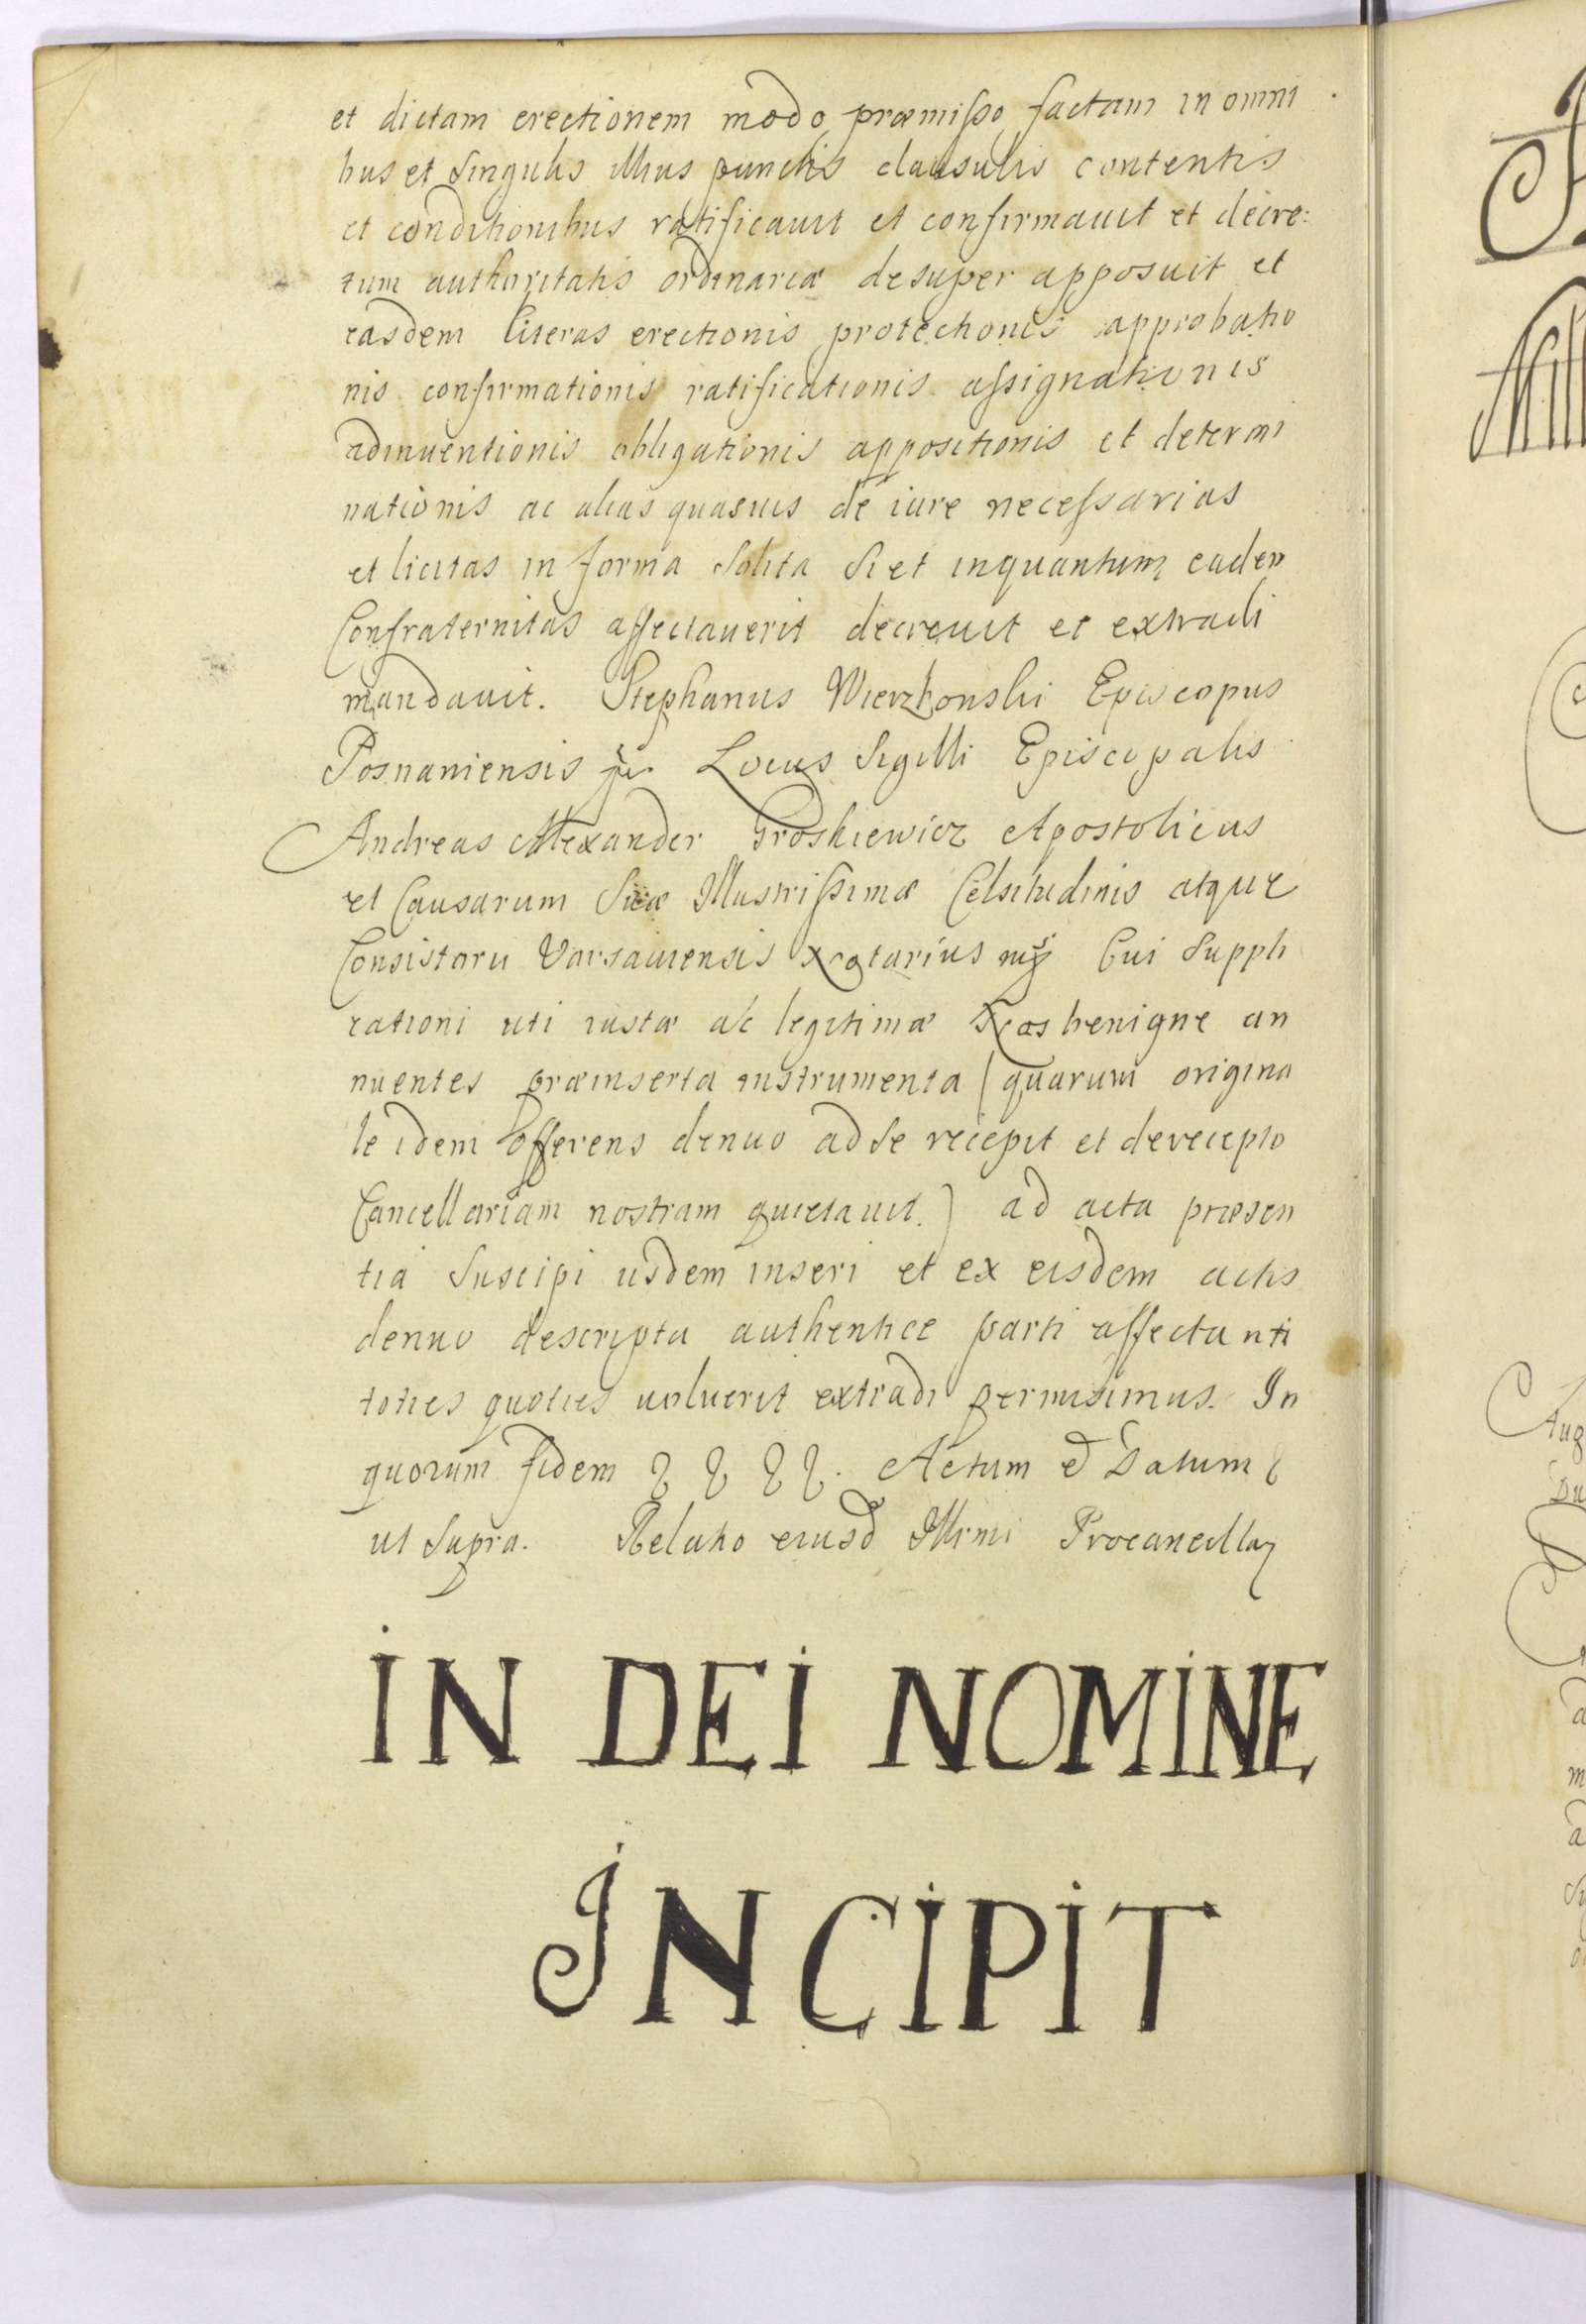 et dictam erectionem modo præmisso factam in omni
bus et singulis illius punctis clausulis contentis
et conditionibus ratificauit et confirmauit et decre:
tum authoritatis ordinariæ desuper apposuit et
easdem literas erectionis protectionis approbatio
nis confirmationis ratificationis assignationis
adinuentionis obligationis appositionis et determi
nationis ac alias quasuis de iure necessarias
et licitas in forma solita si et inquantum eadem
Confraternitas affectauerit decreuit et extradi
mandauit. Stephanus Wierzbowski Episcopus
Posnaniensis Locus Sigilli Episcopalis
Andreas Alexander Groskiewicz Apostolicus
et Causarum Suæ Illustrissimæ Celsitudinis atque
Consistorii Varsauiensis Notarius mp Cui suppli
cationi uti iustæ ac legitimæ Nos benigne an
nuentes præinserta instrumenta (quarum origina
le idem offerens denuo ad se recepit et de recepto
Cancellariam nostram quietauit.) ad acta præsen
tia suscipi iisdem inseri et ex eisdem actis
denuo descripta authentice parti affectanti
toties quoties uoluerit extradi permisimus. In
quorum fidem Actum et Datum
ut supra. Relatio eiusd Illrmi Procancellarÿ
IN DEI NOMINE
INCIPIT